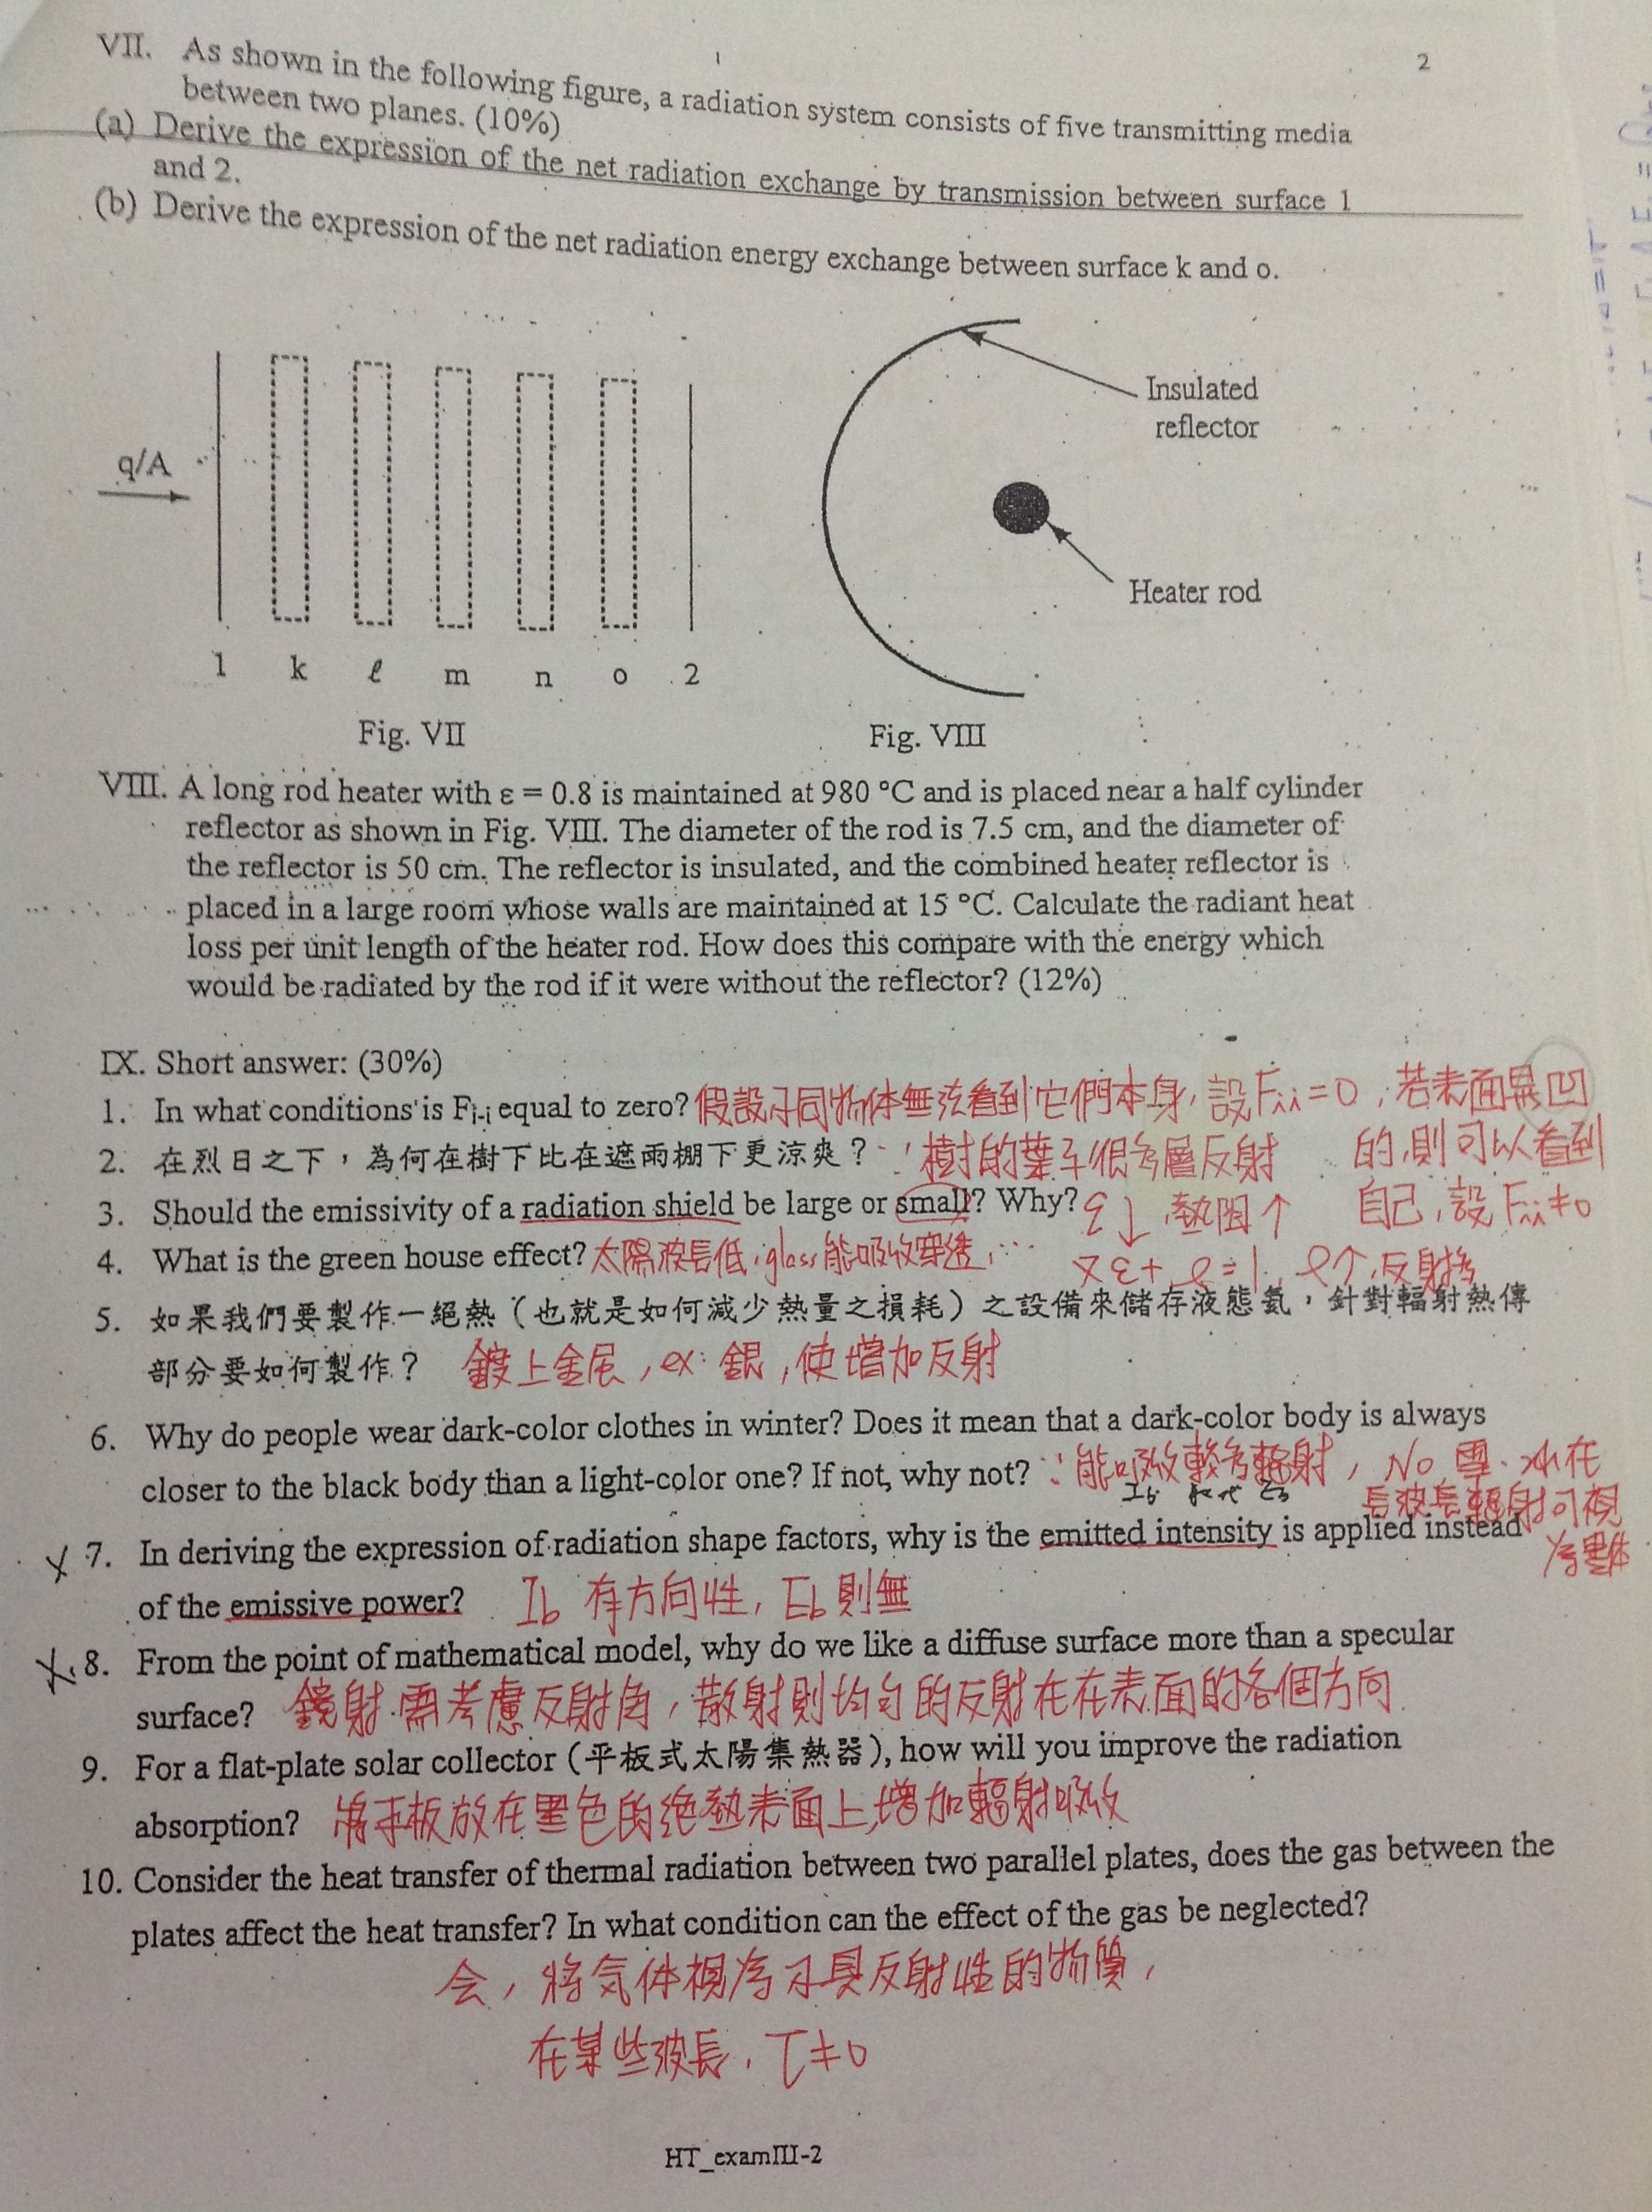 2
VII. As shown in the following figure, a radiation system consists of five transmitting media
between two planes. (10%)
(a) Derive the expression of the net radiation exchange by transmission between surface 1
and 2.
(b) Derive the expression of the net radiation energy exchange between surface k and o.
Insulated
reflector
q/A
Heater rod
1 k ℓ m n o 2
Fig. VII
Fig. VIII
VIII. A long rod heater with ε = 0.8 is maintained at 980 °C and is placed near a half cylinder
reflector as shown in Fig. VIII. The diameter of the rod is 7.5 cm, and the diameter of
the reflector is 50 cm. The reflector is insulated, and the combined heater reflector is
placed in a large room whose walls are maintained at 15 °C. Calculate the radiant heat
loss per unit length of the heater rod. How does this compare with the energy which
would be radiated by the rod if it were without the reflector? (12%)
IX. Short answer: (30%)
1. In what conditions is Fi-i equal to zero? 假設不同物体無法看到它們本身, 設Fii=0, 若表面是凹
的,則可以看到
自己,設Fii≠0
2. 在烈日之下，為何在樹下比在遮雨棚下更涼爽？∵樹的葉子很多層反射
3. Should the emissivity of a radiation shield be large or small? Why? ε↓,熱阻↑
又ε+ρ=1, ρ↑,反射多
4. What is the green house effect? 太陽波長低,glass能吸收穿透,…
5. 如果我們要製作一絕熱（也就是如何減少熱量之損耗）之設備來儲存液態氦，針對輻射熱傳
部分要如何製作？ 鍍上金屬,ex: 銀,使增加反射
6. Why do people wear dark-color clothes in winter? Does it mean that a dark-color body is always
closer to the black body than a light-color one? If not, why not? ∵能吸收較多輻射, No 雪、冰在
長波長輻射可視
為黑体
7. In deriving the expression of radiation shape factors, why is the emitted intensity is applied instead
of the emissive power? Ib 有方向性, Eb則無
8. From the point of mathematical model, why do we like a diffuse surface more than a specular
surface? 鏡射需考慮反射角,散射則均勻的反射在在表面的各個方向
9. For a flat-plate solar collector (平板式太陽集熱器), how will you improve the radiation
absorption? 將平板放在黑色的絕熱表面上,增加輻射吸收
10. Consider the heat transfer of thermal radiation between two parallel plates, does the gas between the
plates affect the heat transfer? In what condition can the effect of the gas be neglected?
会, 將気体視為不具反射性的物質,
在某些波長, τ≠0
HT_examIII-2